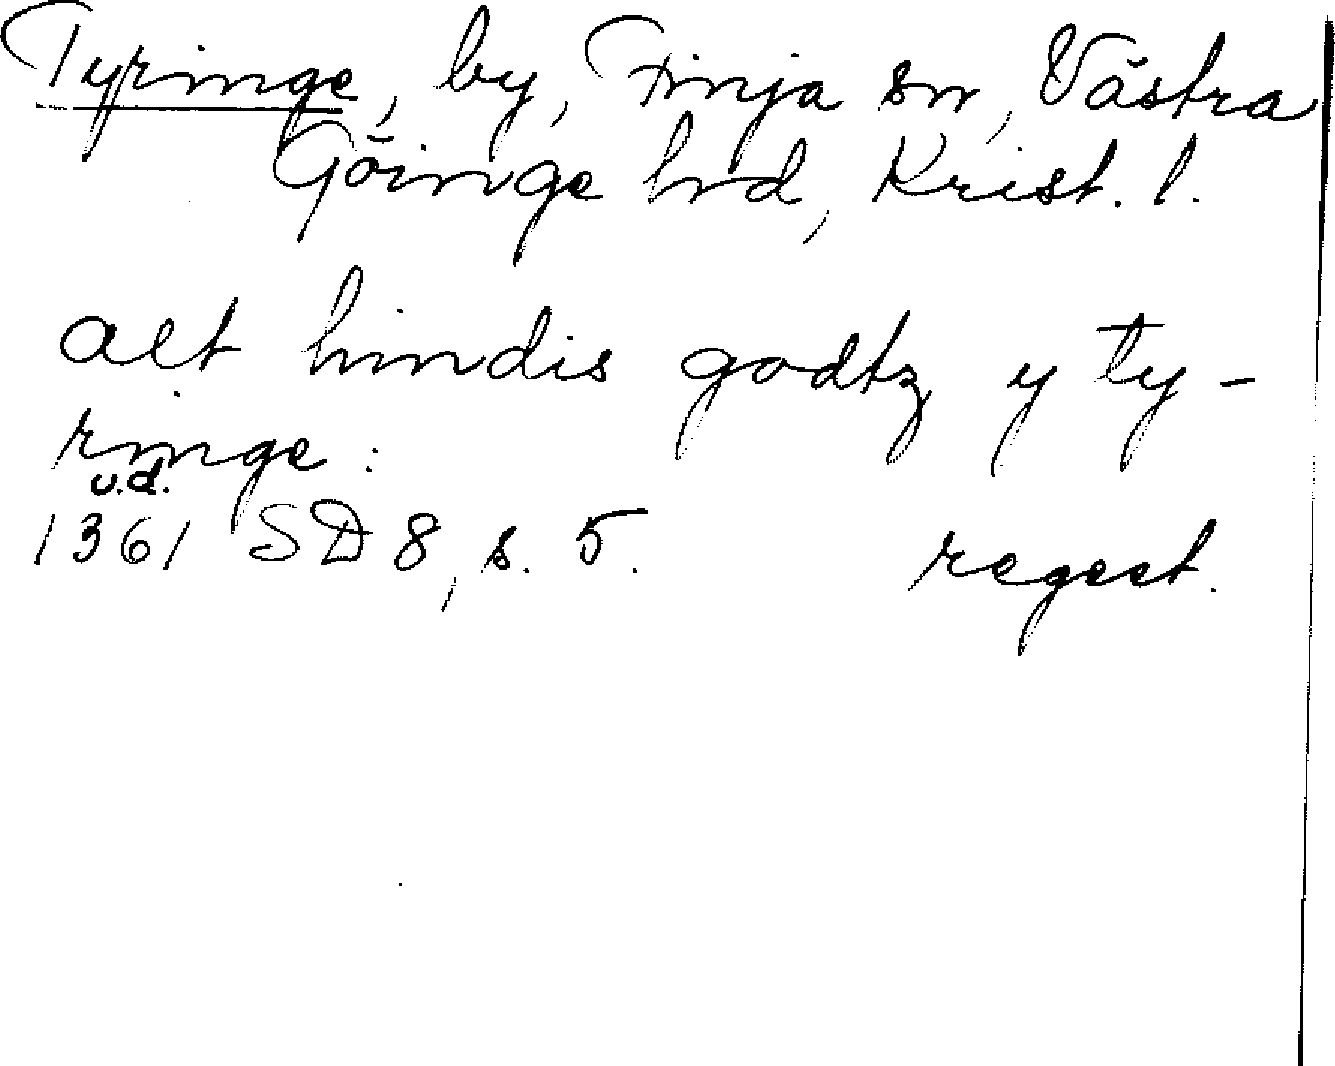 Tyringe, by, Finja sn, Västra
Göinge hrd, Krist. l.
alt hindis godtz y ty-
ringe:
u.d.
1361 SD 8, s. 5. regest.